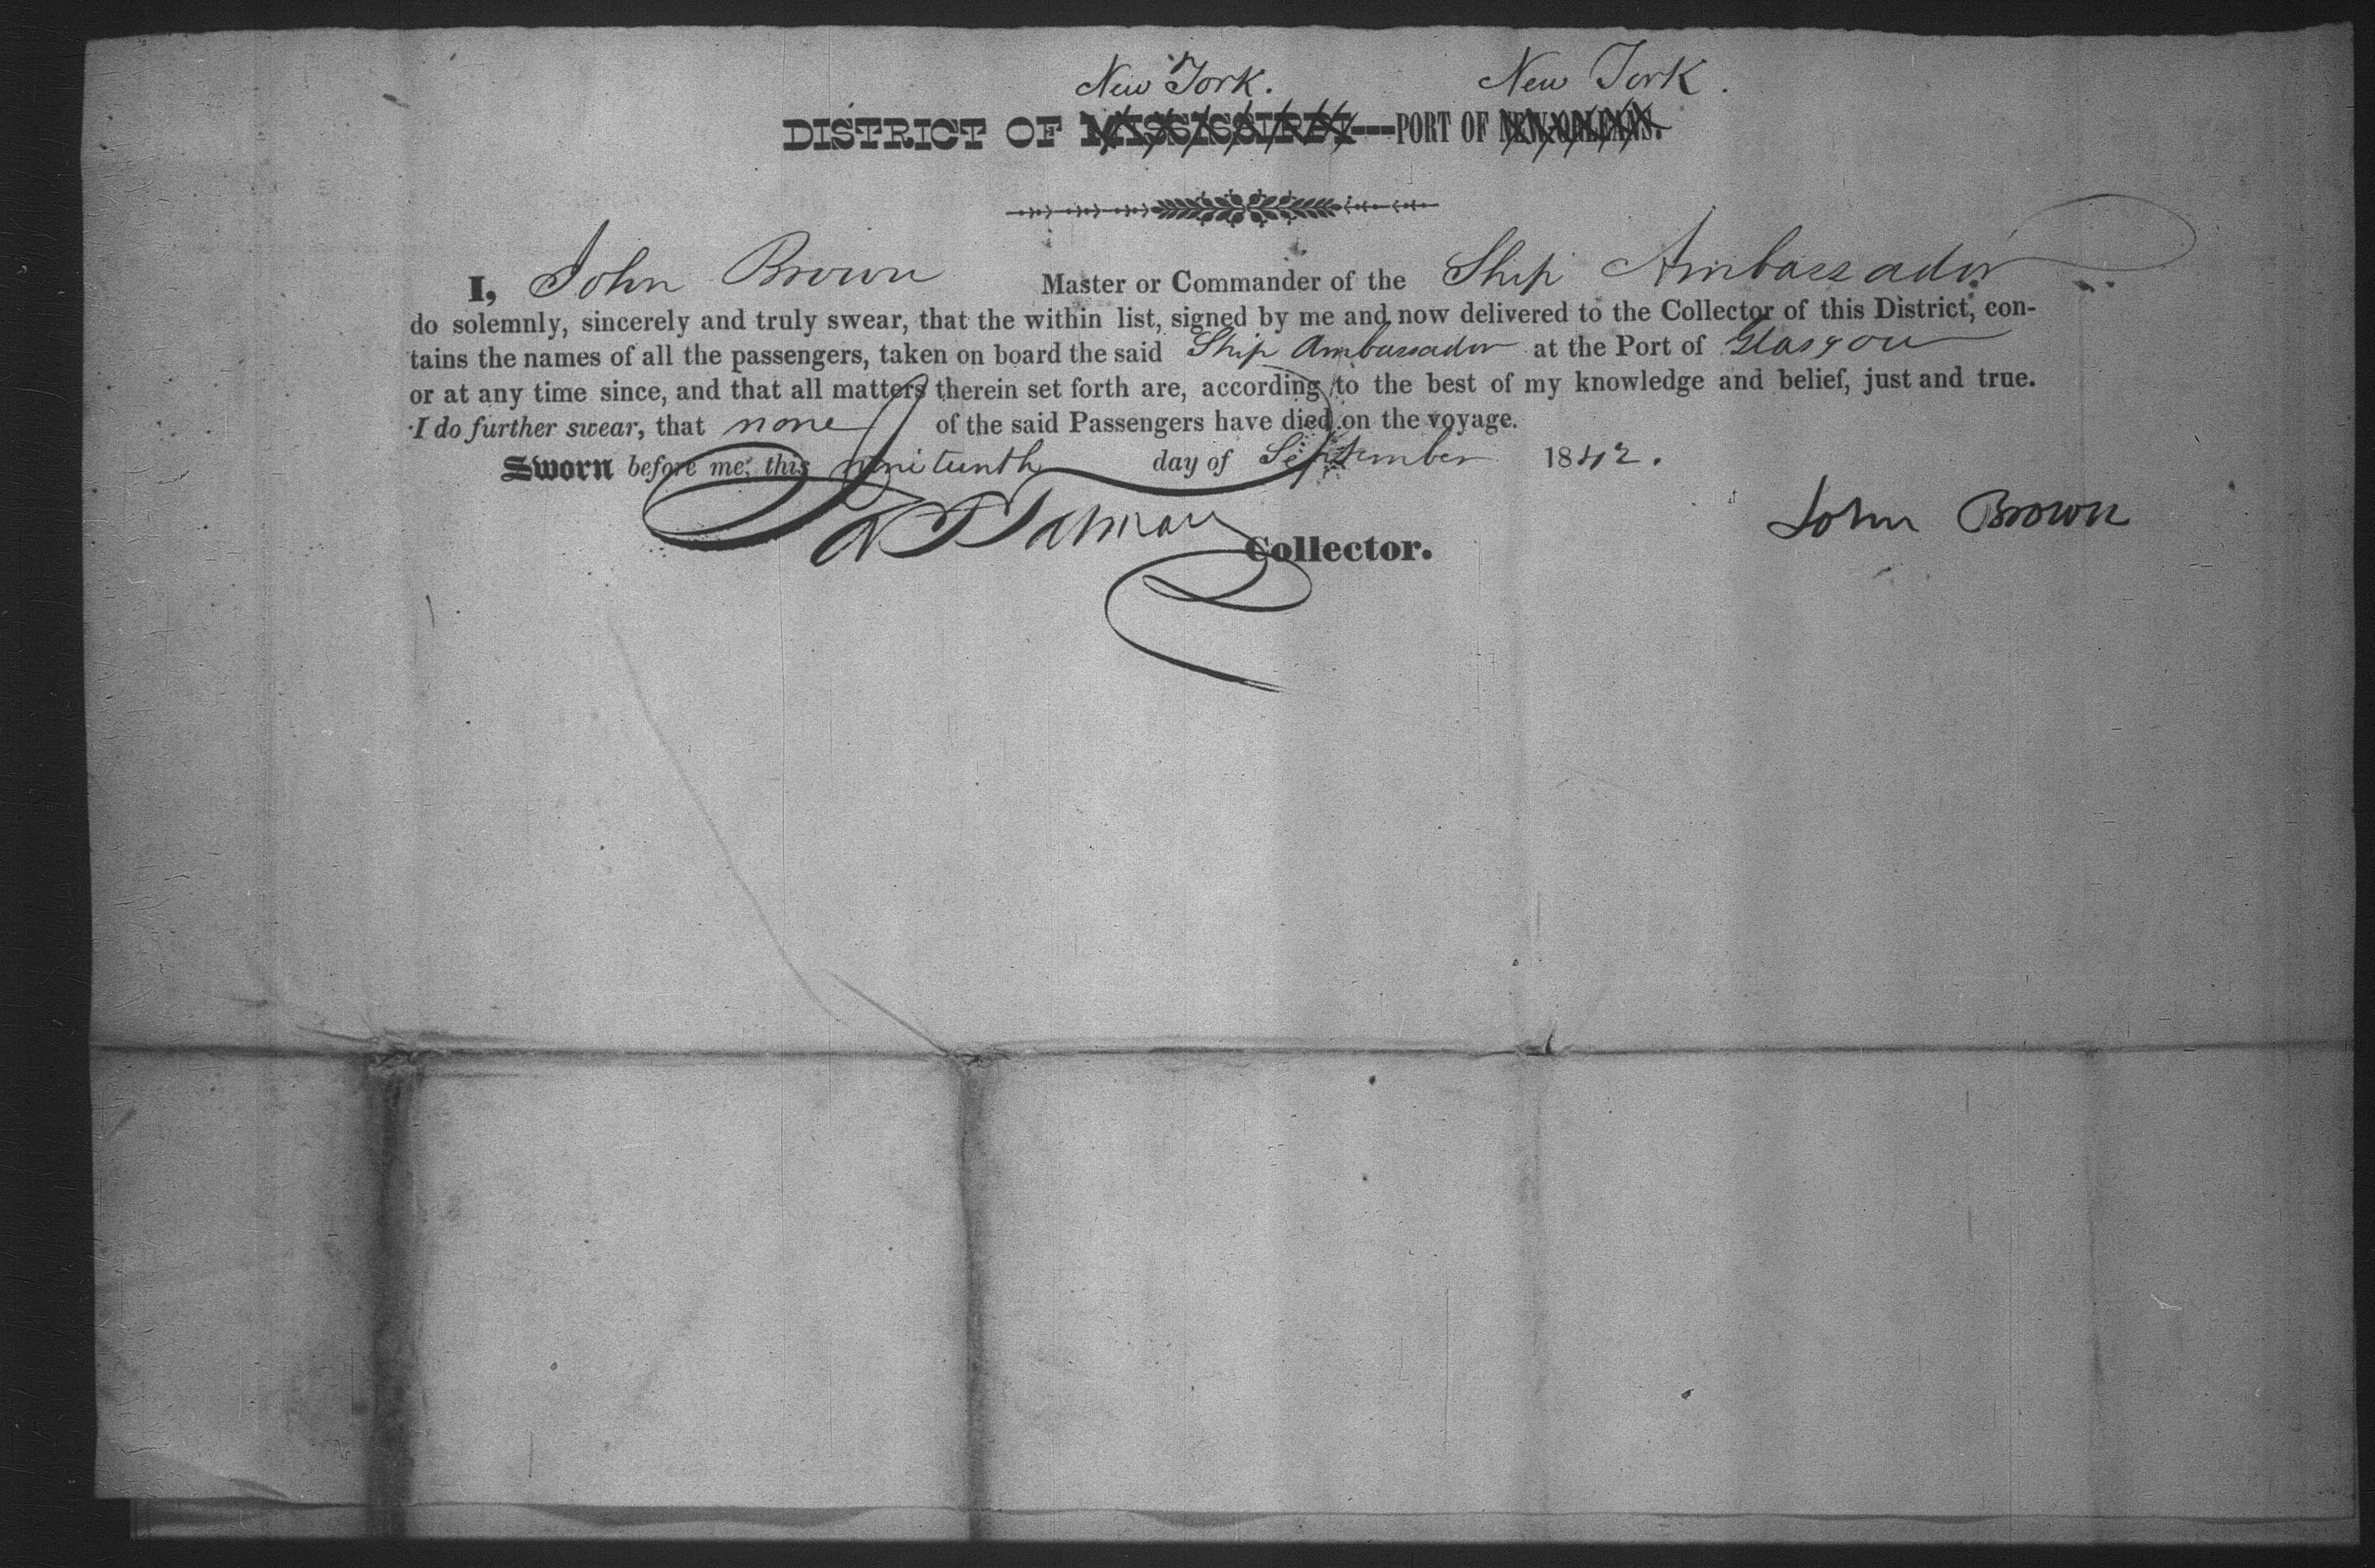 New York. New York.
DISTRICT OF MISSISSIPPI---PORT OF NEW-ORLEANS.
I, John Brown Master or Commander of the Ship Ambassador
do solemnly, sincerely and truly swear, that the within list, signed by me and now delivered to the Collector of this District, con-
tains the names of all the passengers, taken on board the said Ship Ambassador at the Port of Glasgow
or at any time since, and that all matters therein set forth are, according to the best of my knowledge and belief, just and true.
I do further swear, that none of the said Passengers have died on the voyage.
Sworn before me, this ninteenth day of September 1842.
John Brown
Collector.